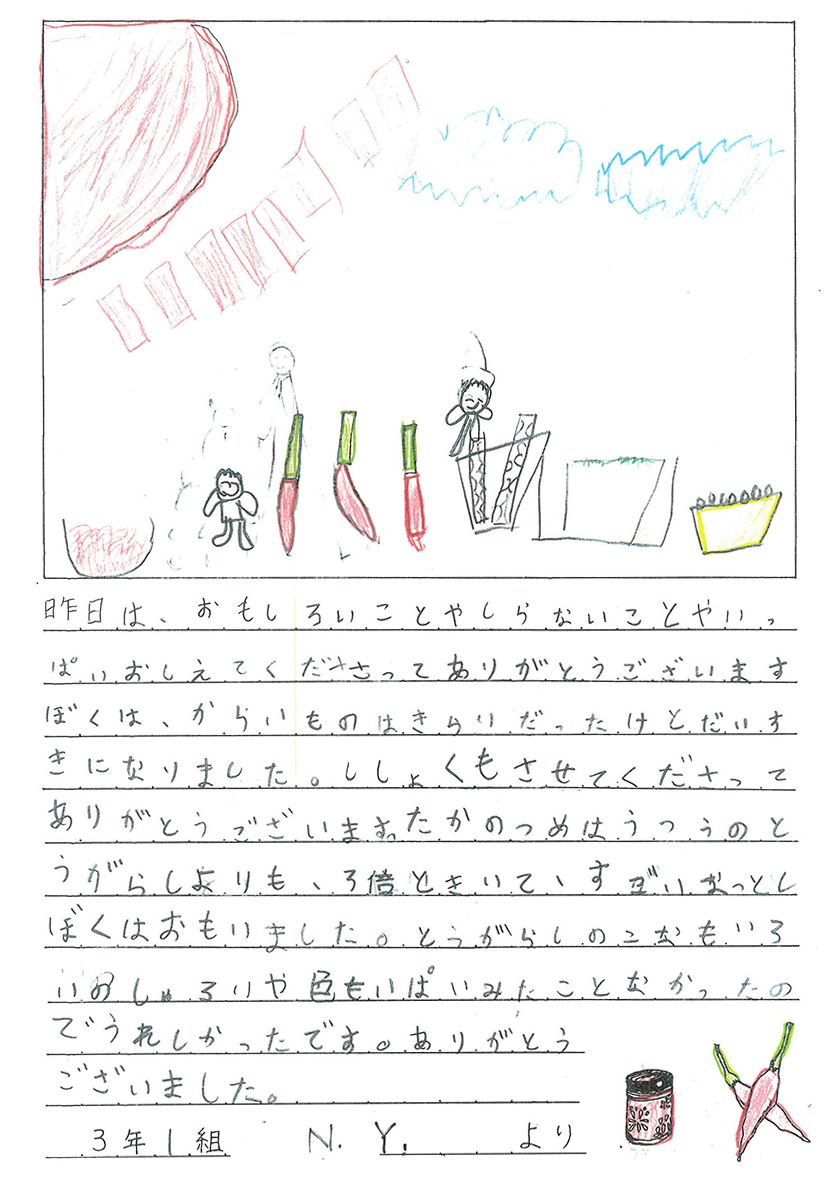 昨日は、おもしろいことやしらないことやいっ
ぱいおしえてくださってありがとうございます
ぼくは、からいものはきらいだったけどだいす
きになりました。ししょくもさせてくださって
ありがとうございます。たかのつめはうつうのと
うがらしよりも、3倍ときいて、すごい
ぼくはおもいました。とうがらしのこなもいろ
いやろいや色もいぱいみたことなかったの
でうれしかったです。ありがとう
ございました。
3年1組 N.Y. より